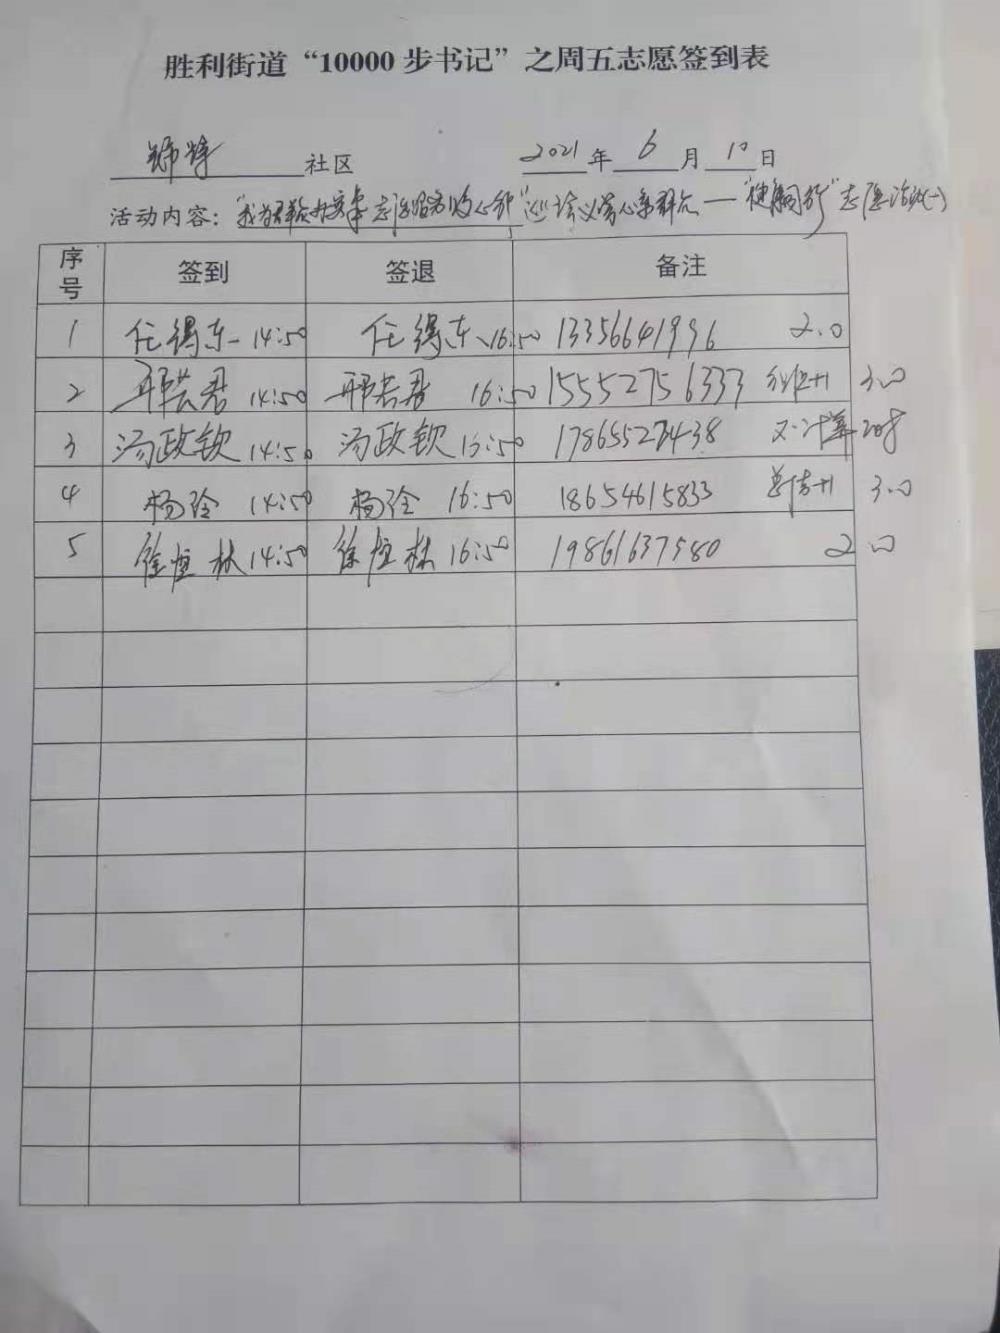 胜利街道“10000步书记”之周五志愿签到表
社区 2021年6月10日
活动内容：“我为群众办实事 志愿服务 ”志愿活动(一)
序号 签到 签退 备注
1 任得东 14:50 任得东 16:50 13356641996 2.0
2 邢芸君 14:50 邢芸君 16:50 15552756333 3.0
3 汤政钦 14:50 汤政钦 13:50 17865527438 不计算
4 杨玲 14:50 杨玲 16:50 18654615833 3.0
5 徐恒林 14:50 徐恒林 16:50 19861637580 2.0